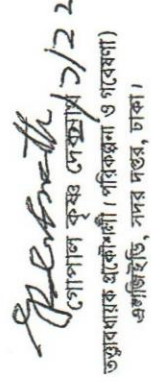 গোপাল কৃষ্ণ দেবনাথ
তত্ত্বাবধায়ক প্রকৌশলী (পরিকল্পনা ও গবেষণা)
এলজিইডি, সদর দপ্তর, ঢাকা।